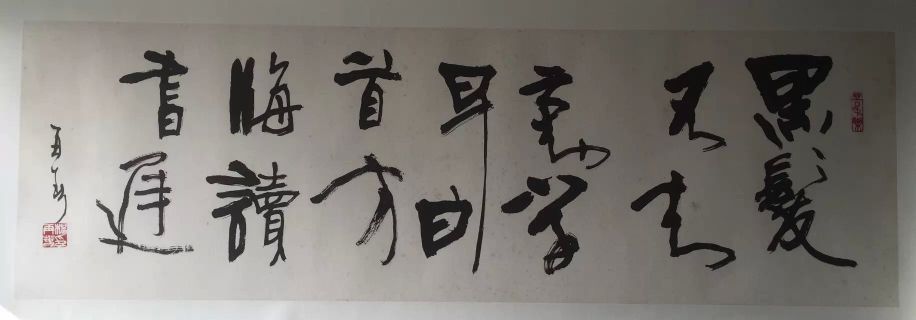 黑髮
不知
勤学
早白
首方
悔讀
書遲